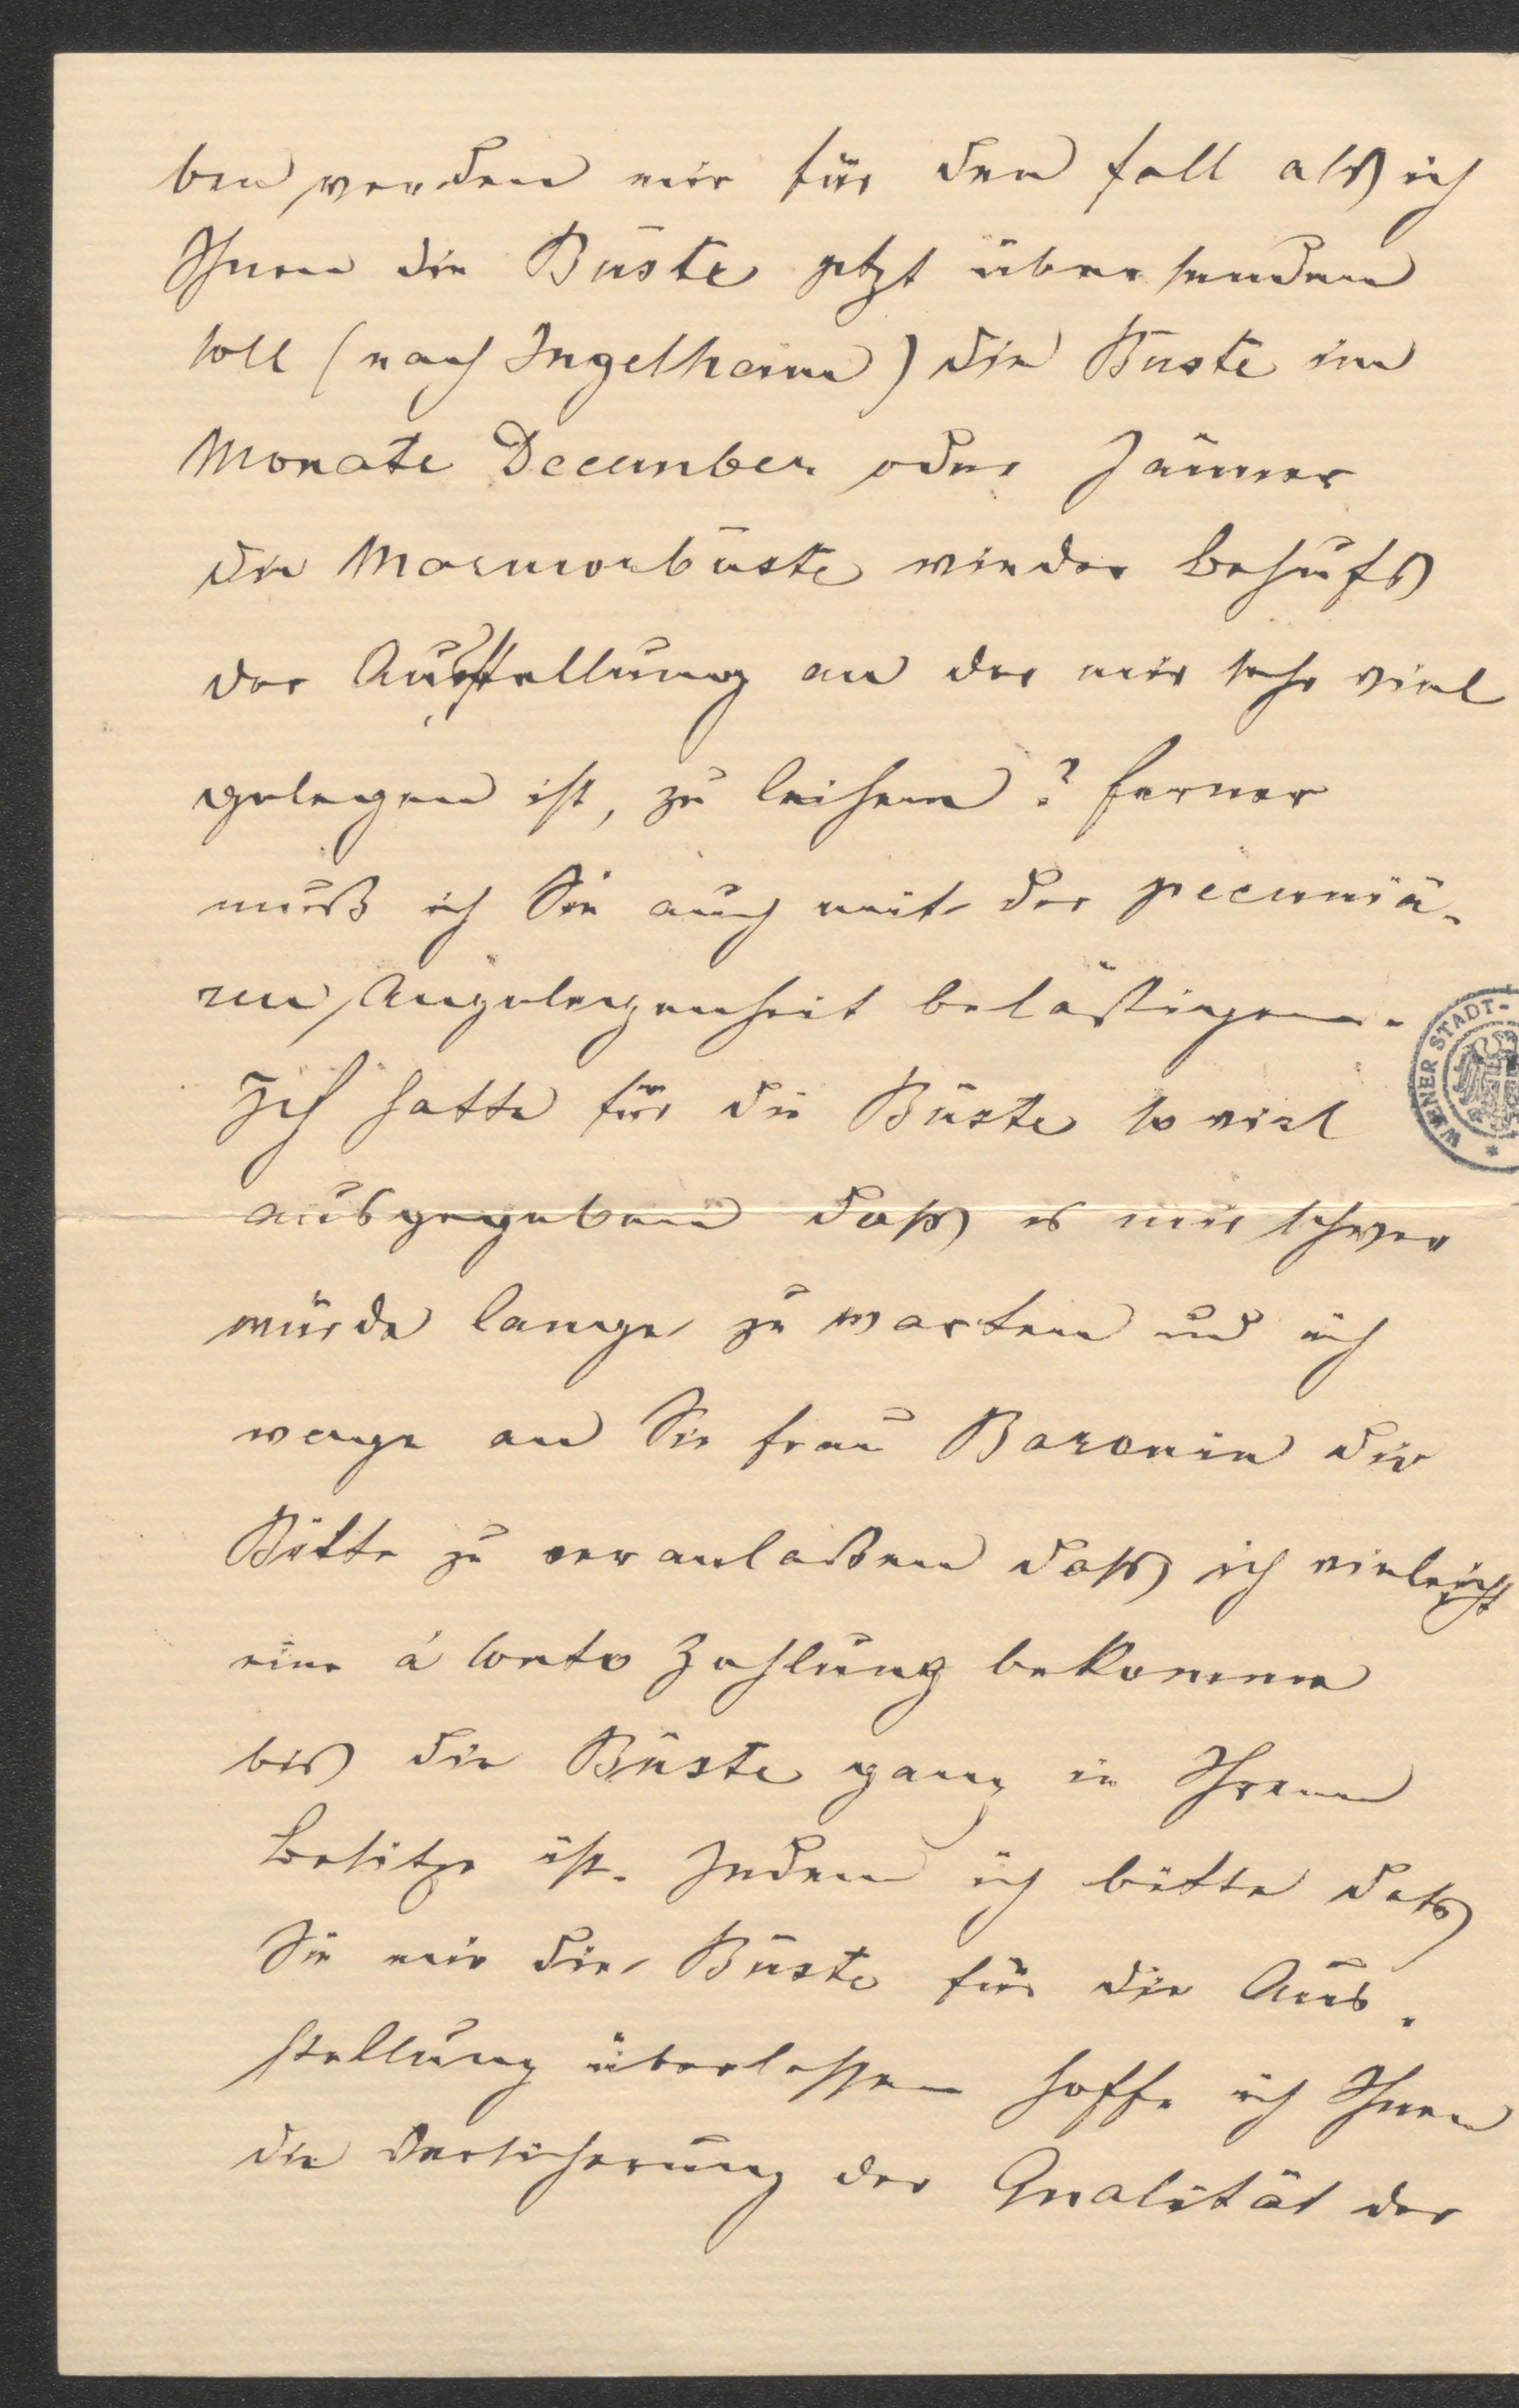 ben werden mir für den Fall als ich
Ihnen die Büste jetzt übersenden
soll (nach Ingelheim) die Büste im
Monate December oder Jänner
die Marmorbüste wieder behufs
der Ausstellung an der mir sehr viel
gelegen ist, zu leihen? Ferner
muß ich Sie auch mit der pecuniä-
ren Angelegenheit belästigen.
Ich hatte für die Büste so viel
ausgegeben dass es mir schwer
würde lange zu warten und ich
wage an Sie Frau Baronin die
Bitte zu veranlaßen dass ich vieleicht
eine á Conto Zahlung bekomme
bis die Büste ganz in Ihrem
Besitze ist. Indem ich bitte dass
Sie mir die Büste für die Aus-
stellung überlassen hoffe ich Ihnen
die Versicherung der Qualität der
WIENER STADT-